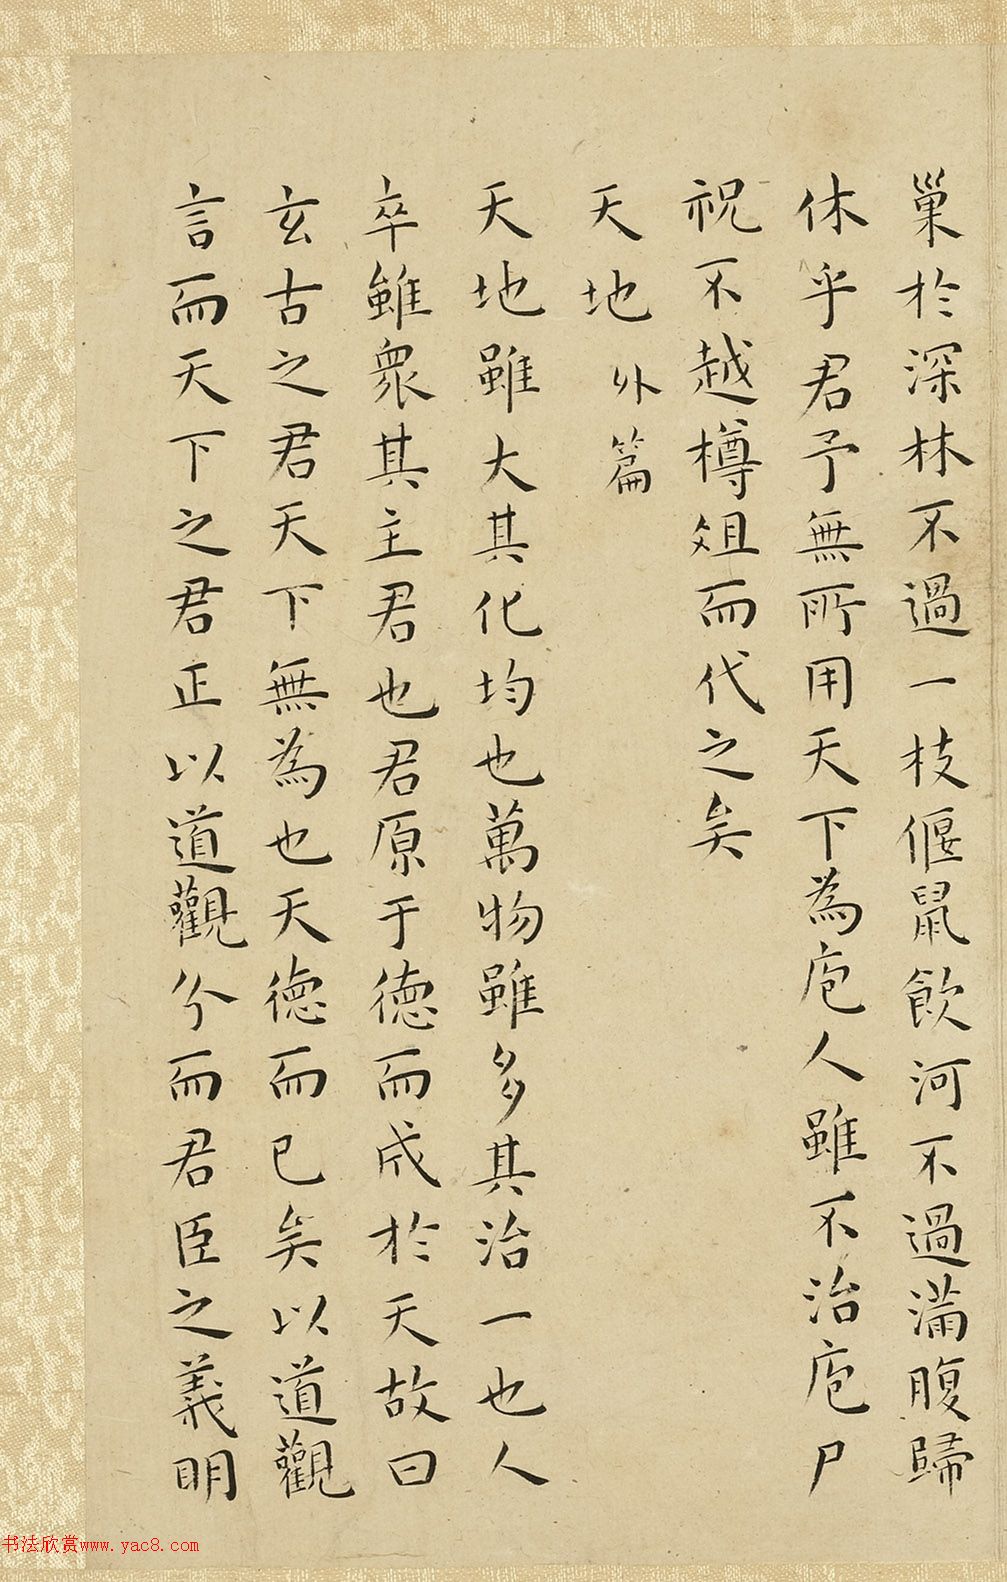 巢於深林不過一枝偃鼠飲河不過滿腹歸
休乎君予無所用天下為庖人雖不治庖尸
祝不越樽俎而代之矣
天地外篇
天地雖大其化均也萬物雖多其治一也人
卒雖眾其主君也君原于德而成於天故曰
玄古之君天下無為也天德而已矣以道觀
言而天下之君正以道觀分而君臣之義明
书法欣赏www.yac8.com